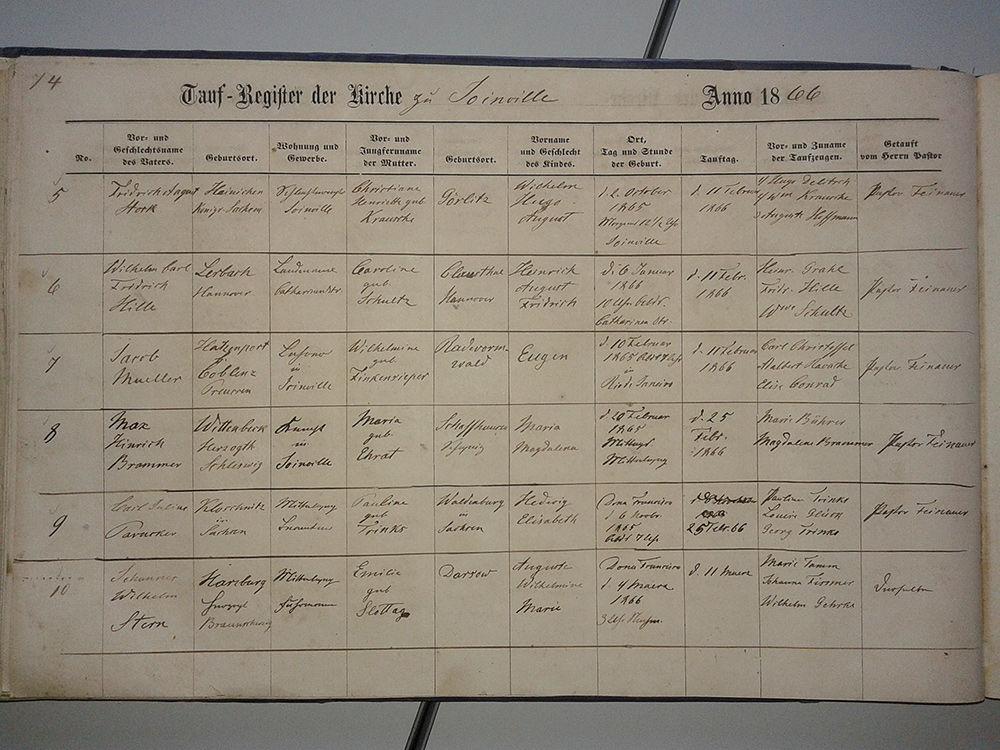 14
Tauf-Register der Kirche zu Joinville Anno 1866
No.
Vor- und
Geschlechtsname
des Vaters.
Geburtsort.
Wohnung und
Gewerbe.
Vor- und
Jungfernname
der Mutter.
Geburtsort.
Vorname
und Geschlecht
des Kindes.
Ort,
Tag und Stunde
der Geburt.
Tauftag.
Vor- und Zuname
der Taufzeugen.
Getauft
vom Herrn Pastor
5
Fridrich August
Stock
Hainichen
Königr. Sachsen
Joinville
Christiane
Henriette geb
Krausche
Görlitz
Wilhelm
Hugo
August
d. 2 October
1865
Morgens 12 1/2 Uhr
Joinville
d. 11 Februar
1866
Hugo Delitsch
Wm Krausche
August Hoffmann
Pastor Feinauer
6
Wilhelm Carl
Fridrich
Hille
Lerbach
Hannover
Landmann
Catharinenstr.
Caroline
geb.
Schultz
Clausthal
Hannover
Heinrich
August
Fridrich
6 Januar
1866
10 Uhr
Catharinen Str.
d. 11 Febr.
1866
Heinr. Grahl
Fridr. Hille
Wwe Schultz
Pastor Feinauer
7
Jacob
Mueller
Hatzenport
b.
Coblenz
Preussen
in
Joinville
Wilhelmine
geb.
Finkensieper
Radevorm-
wald
Eugen
d 10 Februar
1865
in
Rio de Janeiro
d. 11 Februar
1866
Carl Christoffel
Adalbert
Elise Conrad
Pastor Feinauer
8
Max
Hinrich
Brammer
Wittenbeck
Herzogth
Schleswig
in
Joinville
Maria
geb.
Ehrat
Schaffhausen
Schweiz
Maria
Magdalena
d 20 Februar
1865
Mittags
d. 25
Febr.
1866
Marie Bührer
Magdalena Brammer
Pastor Feinauer
9
Carl Julius
Sachsen
Mittelweg
Pauline
geb
Trinks
Waldenburg
in
Sachsen
Hedwig
Elisabeth
Dona Francisca
6 Novbr
1865
25 Febr. 66
Pauline Trinks
Louise
Georg Trinks
Pastor Feinauer
10
Wilhelm
Stern
Harzburg
Herzogt
Braunschweig
Mittelweg
Emilie
geb
Darsow
Auguste
Wilhelmine
Marie
Dona Francisca
1866
d. 11 Maerz
Marie Tamm
Johanna
Wilhelm Gehrke
Derselbe